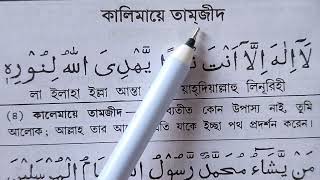 কালিমায়ে তামজীদ
لَآ اِلٰهَ اِلَّآ اَنْتَ نُوْرًا يَّهْدِىَ اللهُ لِنُوْرِهٖ
লা ইলাহা ইল্লা আন্তা য়াহ্‌দিয়াল্লাহু লিনূরিহী
(৪) কালেমায়ে তামজীদ— ব্যতীত কোন উপাস্য নাই, তুমি
আলোক; আল্লাহ তাঁর যাকে ইচ্ছা পথ প্রদর্শন করেন।
مَنْ يَّشَآءُ مُحَمَّدٌ رَّسُوْلُ اللهِ اِمَامُ الْمُرْسَلِيْنَ